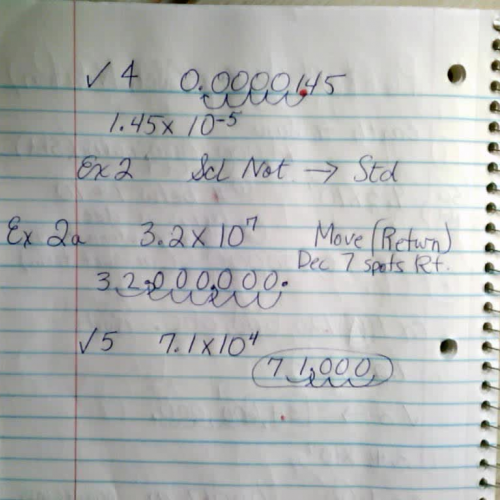 √4 0.0000145
1.45 x 10⁻⁵
Ex 2 Sci Not → Std
Ex 2a 3.2 x 10⁷ Move (Return)
Dec 7 spots Rt.
3.2,000,000.
√5 7.1 x 10⁴
71,000.